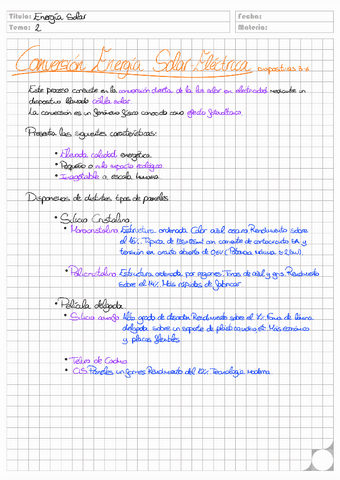 Título: Energía Solar
Fecha:
Tema: 2
Materia:
Conversión Energía Solar Eléctrica Diapositivas
Este proceso consiste en la conversión directa de la luz solar en electricidad mediante un
dispositivo llamado célula solar.
La conversión es un fenómeno físico conocido como efecto fotovoltaico.
Presenta las siguientes características:
• Elevada calidad energética.
• Pequeño o nulo impacto ecológico
• Inagotable a escala humana
Disponemos de distintos tipos de paneles
• Silicio Cristalino
• Monocristalino Estructura ordenada Color azul oscuro Rendimiento sobre
el 16%. Típica de con corriente de cortocircuito 3A y
tensión en circuito abierto de 0,6V (Potencia máxima
• Policristalino Estructura ordenada por regiones. Tonos de azul y gris. Rendimiento
sobre el 14%. Más rápidos de fabricar
• Película delgada
• Silicio amorfo Alto grado de desorden Rendimiento sobre el lámina
delgada sobre un soporte de Más económico
y placas flexibles
• Teluro de Cadmio
• CIS Paneles uniformes Rendimiento del Tecnología moderna